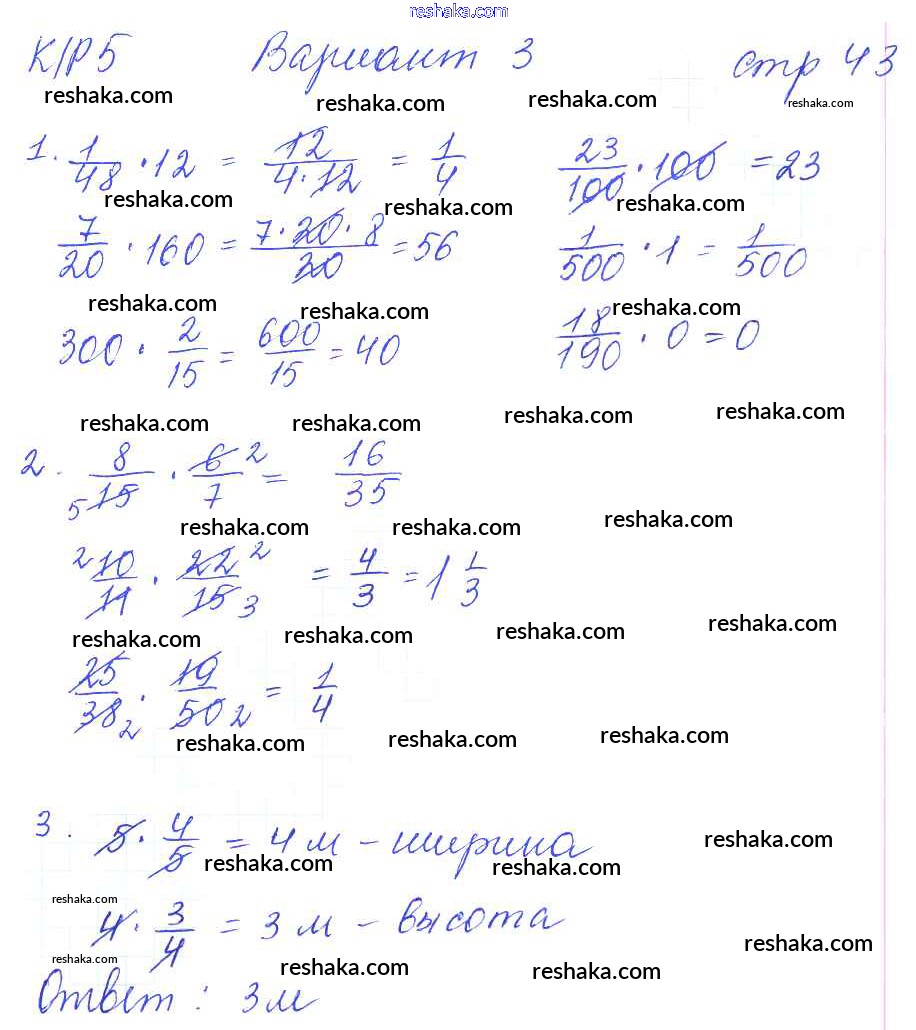 reshaka.com
К/Р 5 Вариант 3 стр 43
reshaka.com reshaka.com reshaka.com reshaka.com
1. 1/48 · 12 = 12/4·12 = 1/4 23/100 · 100 = 23
reshaka.com reshaka.com reshaka.com
7/20 · 160 = 7·20·8/20 = 56 1/500 · 1 = 1/500
reshaka.com reshaka.com reshaka.com
300 · 2/15 = 600/15 = 40 18/190 · 0 = 0
reshaka.com reshaka.com reshaka.com reshaka.com
2. 8/15 5 · 6/7 2 = 16/35
reshaka.com reshaka.com reshaka.com
2 10/11 · 22/15 2 3 = 4/3 = 1 1/3
reshaka.com reshaka.com reshaka.com reshaka.com
25/38 2 · 19/50 2 = 1/4
reshaka.com reshaka.com reshaka.com
3. 5 · 4/5 = 4 м – ширина
reshaka.com reshaka.com reshaka.com
reshaka.com
4 · 3/4 = 3 м – высота
reshaka.com reshaka.com reshaka.com reshaka.com
Ответ: 3м